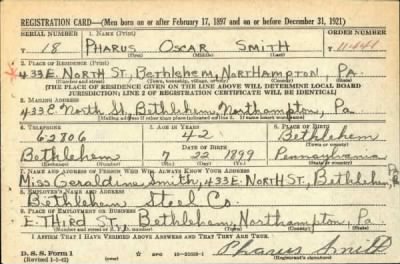 REGISTRATION CARD—(Men born on or after February 17, 1897 and on or before December 31, 1921)
SERIAL NUMBER 1. NAME (Print) ORDER NUMBER
T 18 PHARUS OSCAR SMITH 11441
(First) (Middle) (Last)
2. PLACE OF RESIDENCE (Print)
433 E. NORTH ST., Bethlehem, NORTHAMPTON, PA.
(Number and street) (Town, township, village, or city) (County) (State)
[THE PLACE OF RESIDENCE GIVEN ON THE LINE ABOVE WILL DETERMINE LOCAL BOARD
JURISDICTION; LINE 2 OF REGISTRATION CERTIFICATE WILL BE IDENTICAL]
3. MAILING ADDRESS
433 E. North St., Bethlehem, Northampton, Pa
[Mailing address if other than place indicated on line 2. If same insert word same]
4. TELEPHONE 5. AGE IN YEARS 6. PLACE OF BIRTH
62806 42 Bethlehem
DATE OF BIRTH (Town or county)
Bethlehem 7 22 1899 Pennsylvania
(Exchange) (Number) (Mo.) (Day) (Yr.) (State or country)
7. NAME AND ADDRESS OF PERSON WHO WILL ALWAYS KNOW YOUR ADDRESS
Miss Geraldine Smith, 433 E. NORTH ST., Bethlehem, Pa
8. EMPLOYER'S NAME AND ADDRESS
Bethlehem Steel Co.
9. PLACE OF EMPLOYMENT OR BUSINESS
E. THIRD ST., Bethlehem, Northampton, Pa.
(Number and street or R. F. D. number) (Town) (County) (State)
I AFFIRM THAT I HAVE VERIFIED ABOVE ANSWERS AND THAT THEY ARE TRUE.
D. S. S. Form 1
(Revised 1-1-42) (over) GPO 16-21630-1 Pharus Smith
(Registrant's signature)